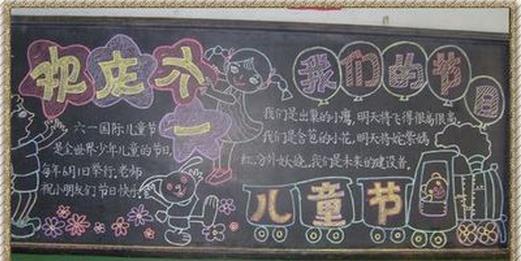 欢庆六一
我们的节日
六一国际儿童节
是全世界少年儿童的节日,
每年6月1举行,老师
祝小朋友们节日快乐!
我们是出巢的小鹰,明天将飞得很高很高,
我们是含苞的小花,明天将姹紫嫣
红,分外妖娆,我们是未来的建设者.
儿童节